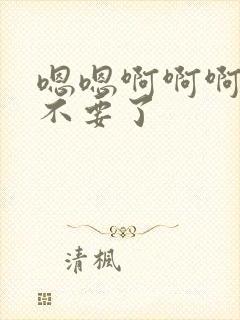 嗯嗯啊啊啊
不要了
清楓